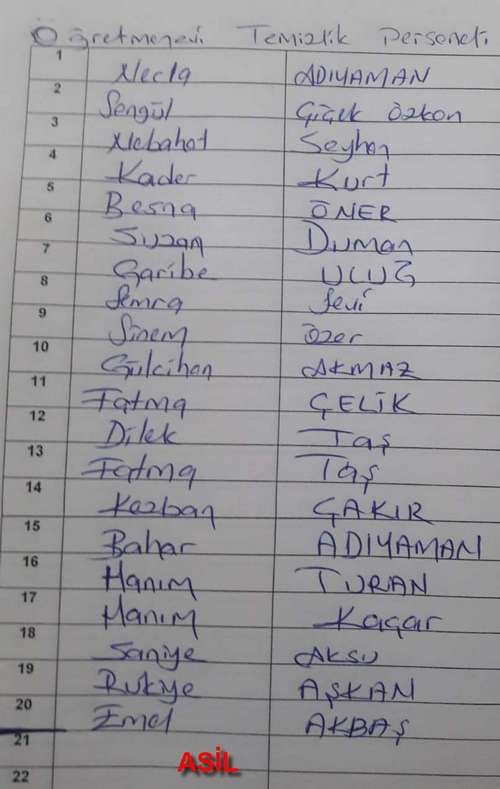 Öğretmenevi Temizlik Personeli
1 Necla ADIYAMAN
2 Şengül Çiçek Özkan
3 Nebahat Seyhan
4 Kader Kurt
5 Besna ÖNER
6 Suzan Duman
7 Garibe ULUĞ
8 Semra Sevi
9 Sinem Özer
10 Gülcihan AKMAZ
11 Fatma ÇELİK
12 Dilek Taş
13 Fatma Taş
14 Kezban ÇAKIR
15 Bahar ADIYAMAN
16 Hanım TURAN
17 Hanım Kaçar
18 Saniye AKSU
19 Rukiye AŞKAN
20 Emel AKBAŞ
21
ASİL
22